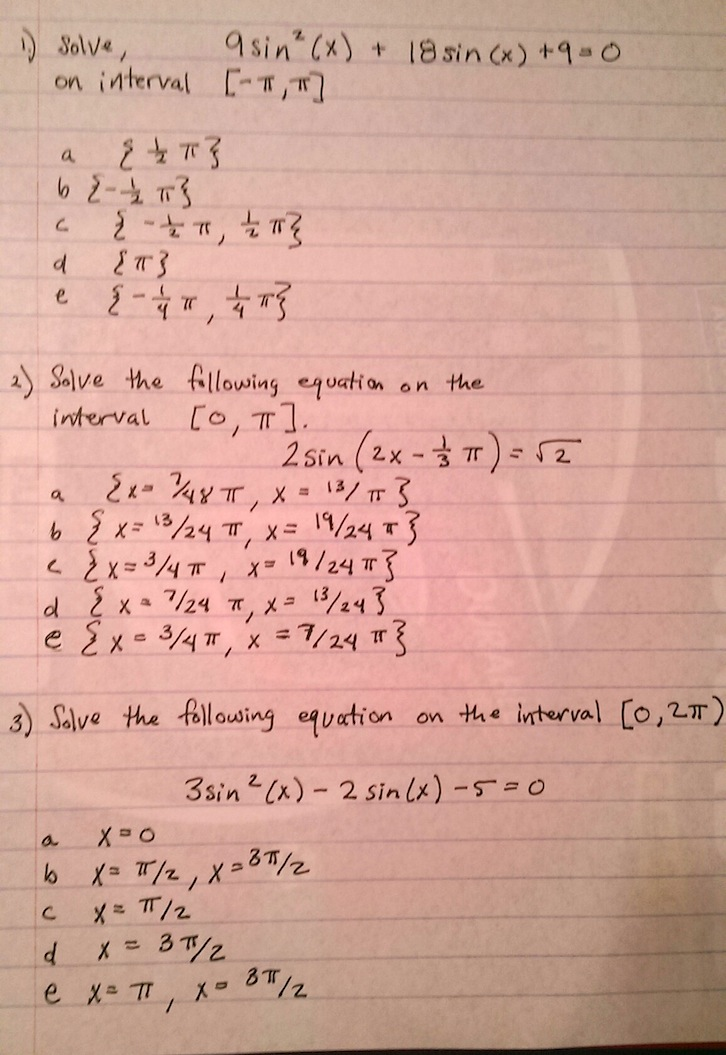 1.) Solve, 9 sin²(x) + 18 sin(x) + 9 = 0
on interval [-π, π]
a {½ π}
b {-½ π}
c {-½ π, ½ π}
d {π}
e {-¼ π, ¼ π}
2) Solve the following equation on the
interval [0, π].
2 sin (2x - ⅓ π) = √2
a {x = 7/48 π, x = 13/ π}
b {x = 13/24 π, x = 19/24 π}
c {x = 3/4 π, x = 19/24 π}
d {x = 7/24 π, x = 13/24}
e {x = 3/4 π, x = 7/24 π}
3) Solve the following equation on the interval [0, 2π)
3 sin²(x) - 2 sin(x) - 5 = 0
a x = 0
b x = π/2, x = 3π/2
c x = π/2
d x = 3π/2
e x = π, x = 3π/2